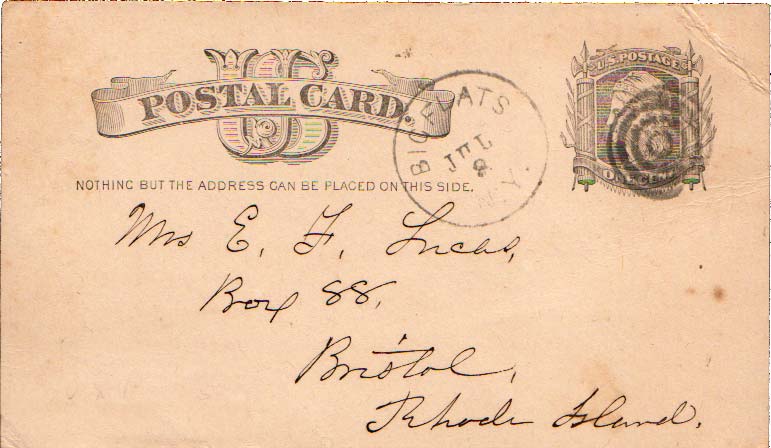 US
POSTAL CARD.
U.S. POSTAGE
ONE CENT
BIG FLATS
JUL
8
N.Y.
NOTHING BUT THE ADDRESS CAN BE PLACED ON THIS SIDE.
Mrs E. F. Lucas,
Box 88,
Bristol,
Rhode Island.